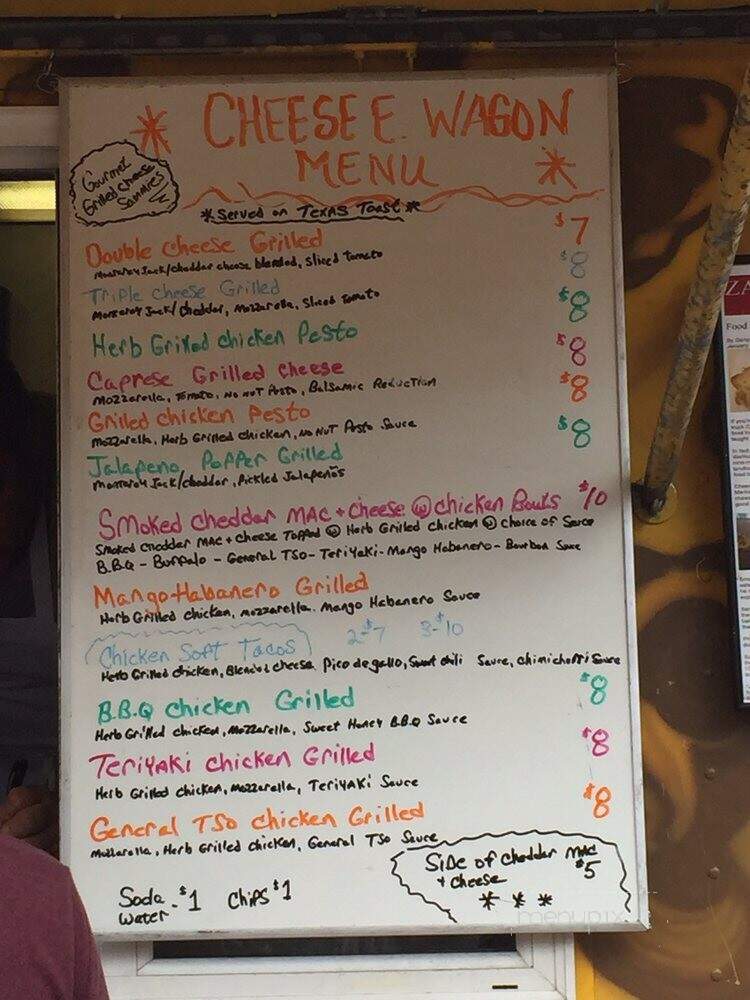 CHEESE E. WAGON
MENU
Gourmet
Grilled cheese
Sammies
*Served on Texas Toast*
Double Cheese Grilled $7
Monterey Jack/cheddar cheese blended, sliced tomato
Triple Cheese Grilled $8
Monterey Jack/cheddar, Mozzarella, Sliced Tomato
Herb Grilled chicken Pesto $8
Caprese Grilled cheese $8
Mozzarella, Tomato, No NUT Pesto, Balsamic Reduction
Grilled chicken Pesto $8
Mozzarella, Herb Grilled chicken, No NUT Pesto Sauce
Jalapeno Popper Grilled $8
Monterey Jack/cheddar, Pickled Jalapeños
Smoked cheddar MAC + Cheese @ chicken Bowls $10
Smoked cheddar MAC + Cheese Topped @ Herb Grilled Chicken @ choice of Sauce
B.B.Q - Buffalo - General TSO - Teriyaki - Mango Habanero - Bourbon Sauce
Mango-Habanero Grilled
Herb Grilled chicken, mozzarella. Mango Habanero Sauce
Chicken Soft Tacos 2-$7 3-$10
Herb Grilled chicken, Blended cheese, Pico de gallo, Sweet chili Sauce, chimichurri Sauce
B.B.Q chicken Grilled $8
Herb Grilled chicken, Mozzarella, Sweet Honey B.B.Q Sauce
Teriyaki chicken Grilled $8
Herb Grilled chicken, mozzarella, Teriyaki Sauce
General TSO chicken Grilled $8
Mozzarella, Herb Grilled chicken, General TSO Sauce
Side of cheddar MAC
+ cheese $5
* * *
Soda - $1 Chips $1
Water
menupix
ZA
Food